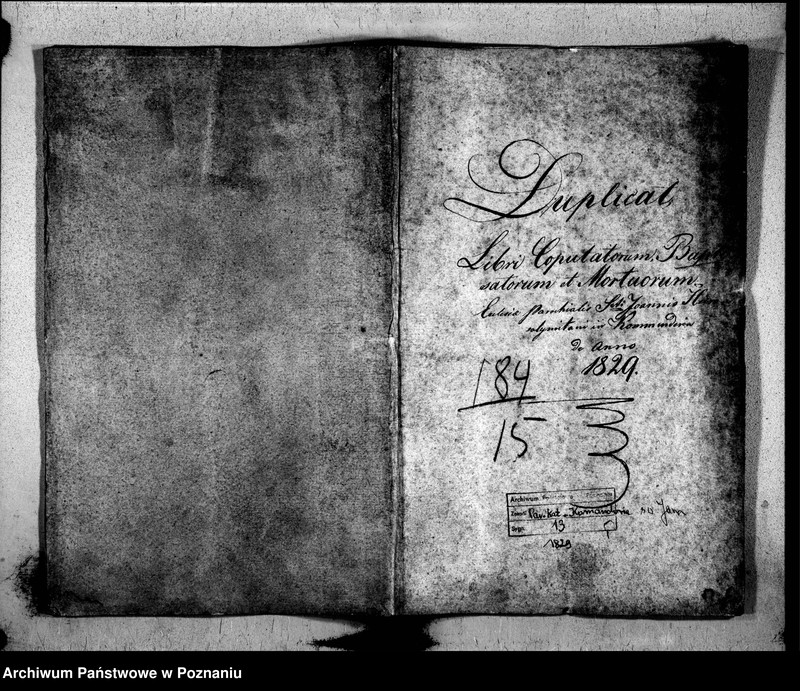 Duplicat
Libri Coputatorum, Bapti
satorum et Mortuorum
Eclesie Parochialis Scti Joannis
in Kommenderia
de Anno
1829.
184
15
Archiwum
Zespół Par. Kat. Komandoria św Jan
Sygn. 13
1829
Archiwum Państwowe w Poznaniu